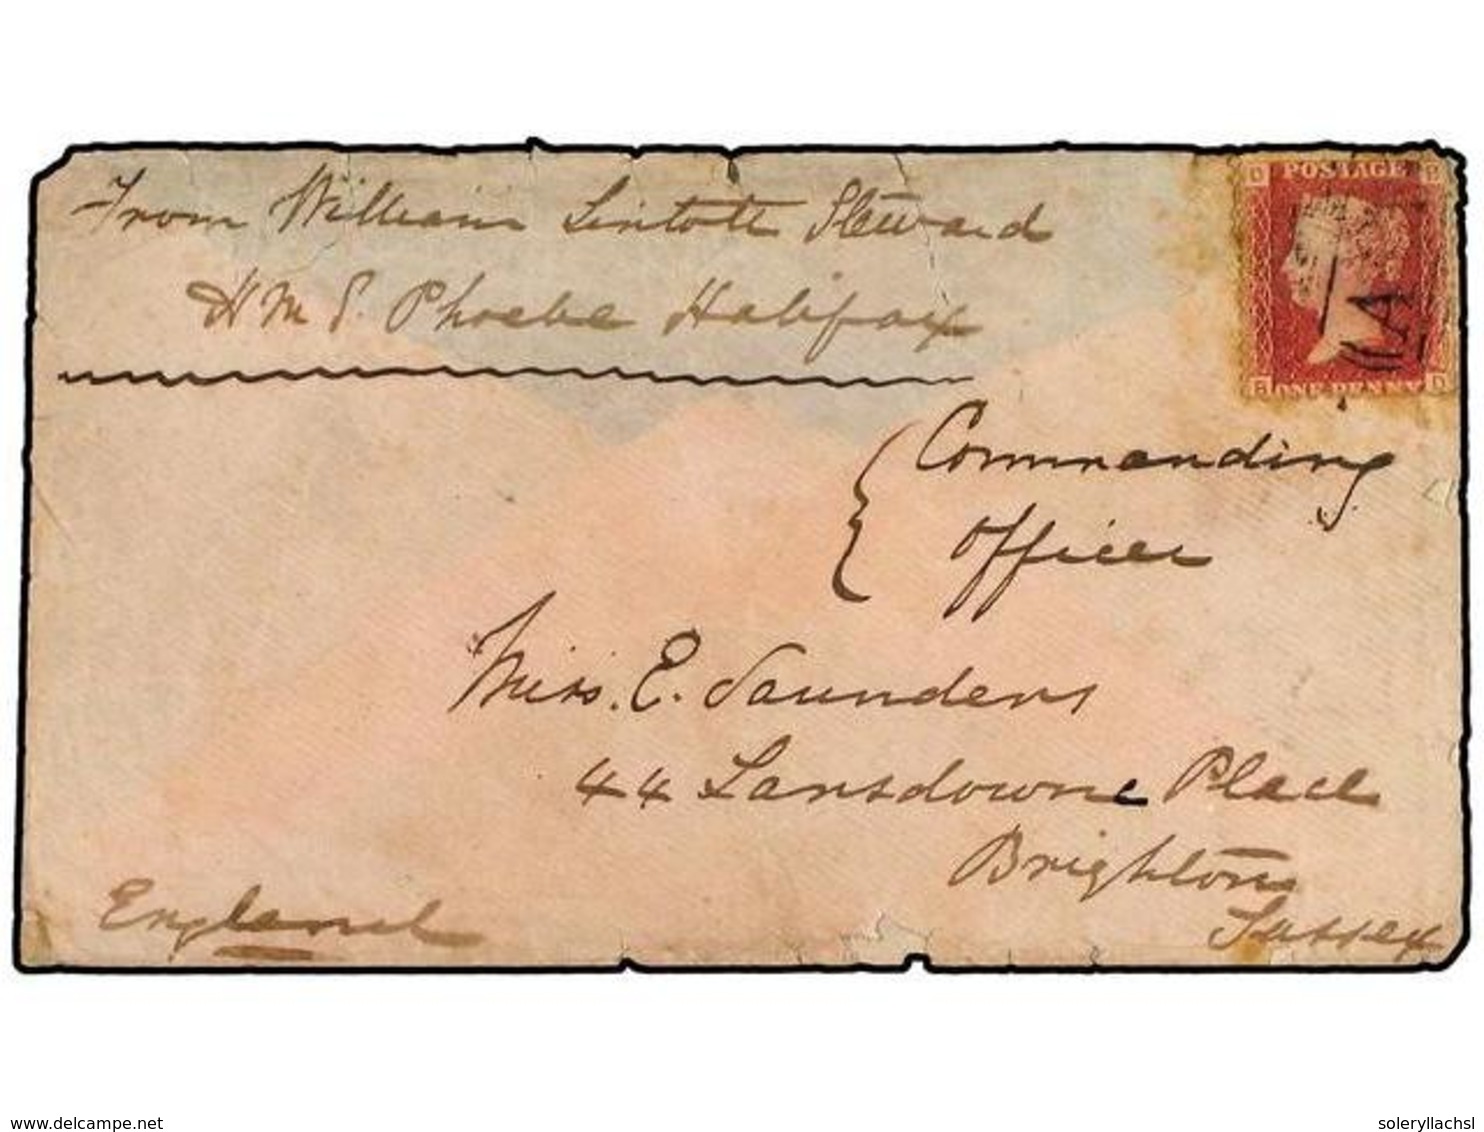 From William Lintott Steward
H M S. Phoebe Halifax
D POSTAGE B
1A
B ONE PENNY D
Commanding
Officer
Miss. E. Saunders
44 Lansdowne Place
Brighton
Sussex
England
www.delcampe.net
soleryllachsl